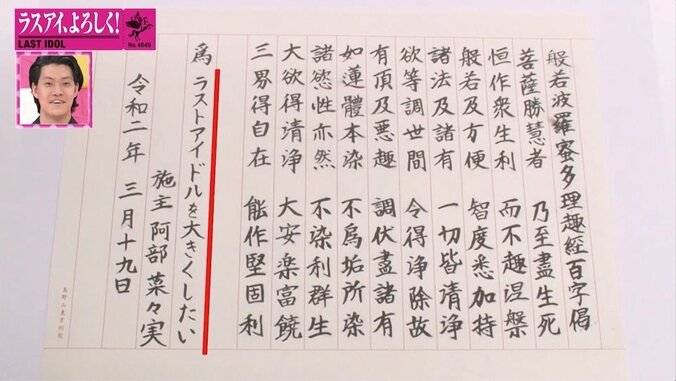 ラスアイ、よろしく!
LAST IDOL
No.4649
般若波羅蜜多理趣経百字偈
菩薩勝慧者 乃至盡生死
恒作衆生利 而不趣涅槃
般若及方便 智度悉加持
諸法及諸有 一切皆清浄
欲等調世間 令得浄除故
有頂及悪趣 調伏盡諸有
如蓮體本染 不為垢所染
諸慾性亦然 不染利群生
大欲得清浄 大安楽富饒
三界得自在 能作堅固利
為 ラストアイドルを大きくしたい
施主 阿部菜々実
令和二年 三月十九日
高野山東京別院